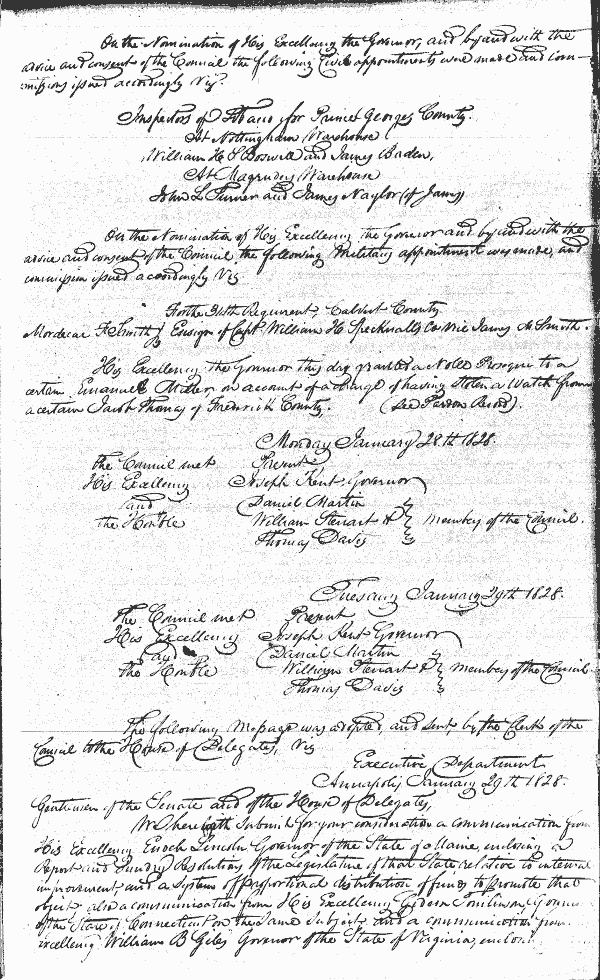 On the Nomination of His Excellency the Governor, and by and with the
advice and consent of the Council the following Civil appointments were made and com-
missions issued accordingly Viz.
Inspectors of Tobacco for Prince Georges County.
At Nottingham Warehouse
William H. S Boswell and James Baden,
At Magruders Warehouse
John L. Turner and James Naylor (of James)
On the Nomination of His Excellency the Governor and by and with the
advice and consent of the Council, the following Military appointment was made, and
commission issued accordingly Viz
For the 31st Regiment, Calvert County
Mordecai F. Smith Ensign of Capt William H. Co vice James M. Smith.
His Excellency the Governor this day granted a Nolle Prosequi to a
certain Emanuel Miller on account of a charge of having stolen a Watch from
a certain Jacob Thomas of Frederick County. (See Pardon Record).
Monday January 28th 1828.
The Council met Present
His Excellency Joseph Kent Governor
and Daniel Martin
the Honble William Stewart & members of the Council.
Thomas Davis
Tuesday January 29th 1828.
The Council met Present
His Excellency Joseph Kent Governor
and Daniel Martin
the Honble William Stewart & members of the Council
Thomas Davis
The following Message was adopted, and sent by the Clerk of the
Council to the House of Delegates, Viz
Executive Department
Annapolis January 29th 1828.
Gentlemen of the Senate and of the House of Delegates,
We herewith submit for your consideration a communication from
His Excellency Enoch Lincoln Governor of the State of Maine, enclosing a
Report and Sundry Resolutions of the Legislature of that State, relative to internal
improvement and a system of proportional distribution of funds to promote that
object, also a communication from His Excellency Gideon Tomlinson, Governor
of the State of Connecticut on the same subject and a communication from
excellency William B Giles Governor of the State of Virginia,